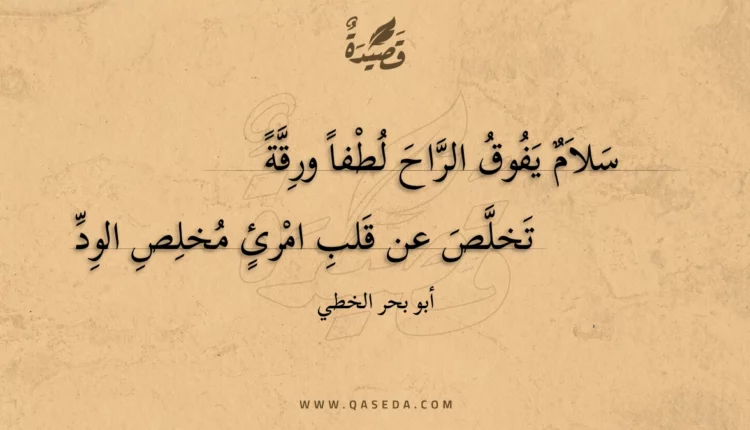 قَصِيْدَةٌ
سَلاَمٌ يَفُوقُ الرَّاحَ لُطْفاً ورِقَّةً
تَخلَّصَ عن قَلبِ امْرئٍ مُخلِصِ الوِدِّ
أبو بحر الخطي
WWW.QASEDA.COM